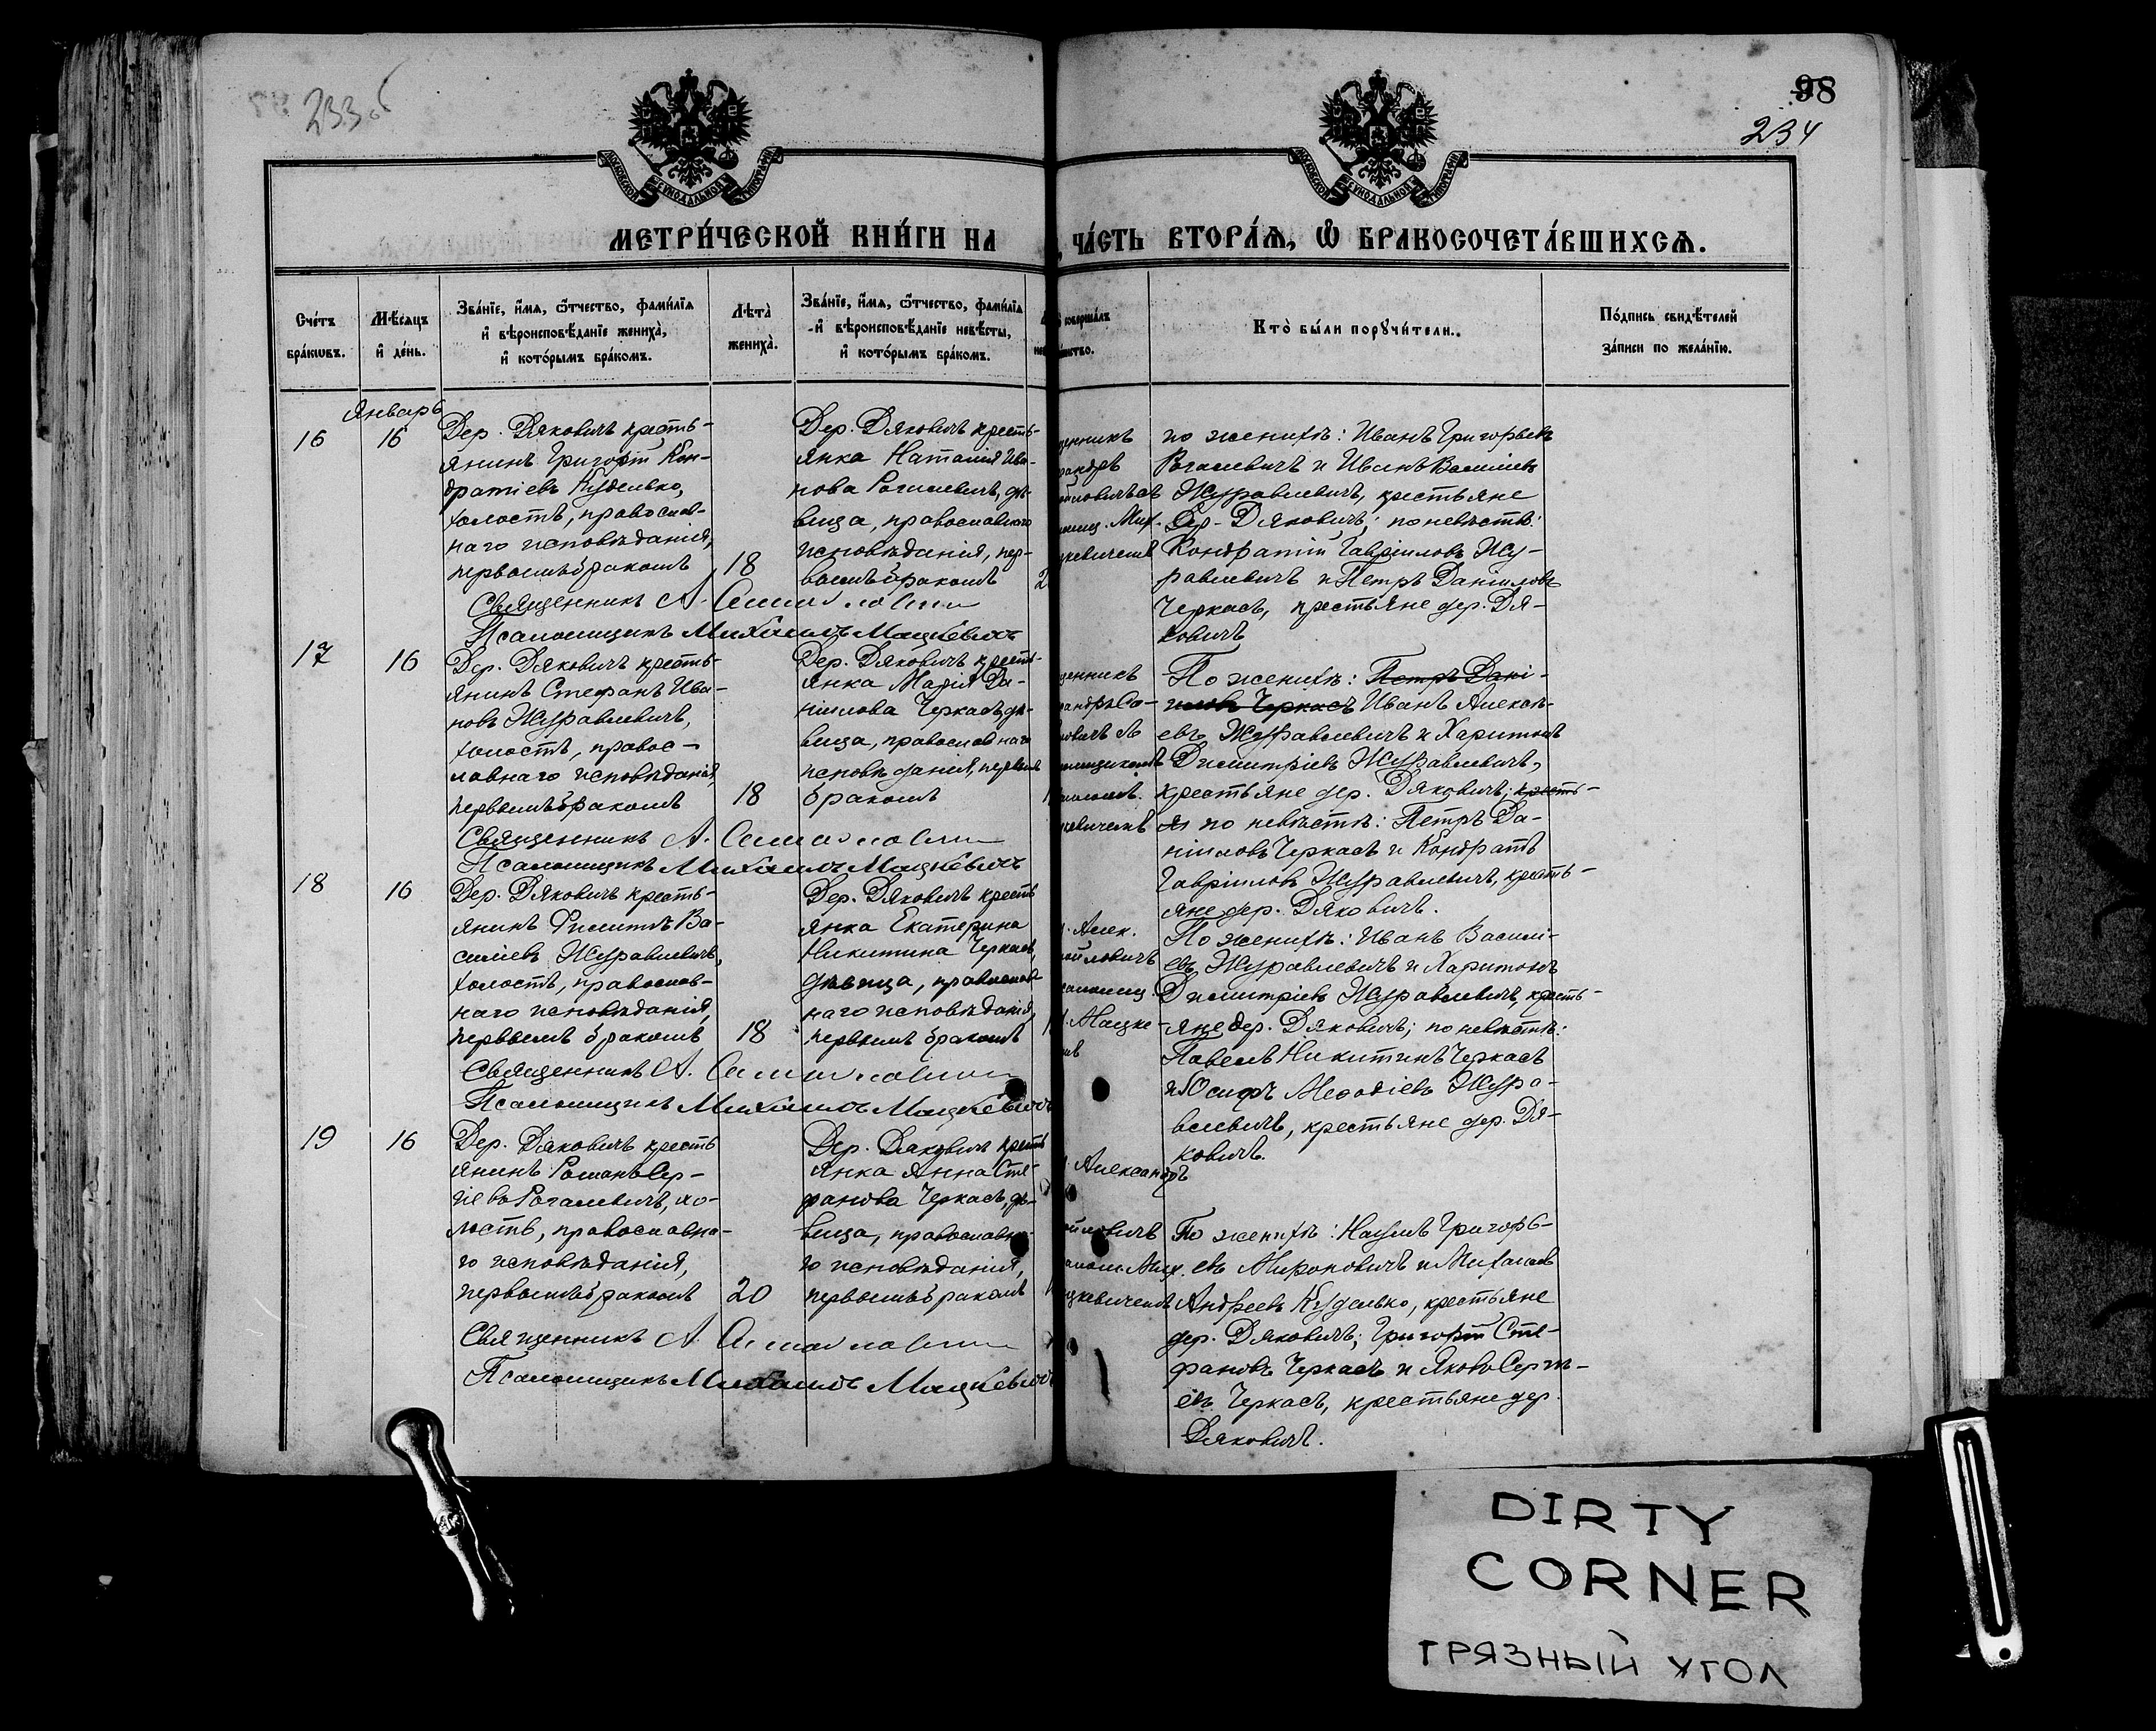 233 об
98
234
МОСКОВСКОЙ СѴНОДАЛЬНОЙ ТИПОГРАФІИ
МОСКОВСКОЙ СѴНОДАЛЬНОЙ ТИПОГРАФІИ
МЕТРИ́ЧЕСКОЙ КНИ́ГИ НА
, ЧА́СТЬ ВТОРА́Ѧ, Ѿ БРАКОСОЧЕТА́ВШИХСѦ.
Сче́тъ
бра́кѡвъ.
Мѣ́сѧцъ
и҆ де́нь.
Зва́нїе, и҆́мѧ, ѻ҆́тчество, фами́лїѧ
и҆ вѣроисповѣ́данїе жениха̀,
и҆ кото́рымъ бра́комъ.
Лѣта̀
жениха̀.
Зва́нїе, и҆́мѧ, ѻ҆́тчество, фами́лїѧ
и҆ вѣроисповѣ́данїе невѣ́сты,
и҆ кото́рымъ бра́комъ.
соверша́лъ
Кто̀ бы́ли порꙋчи́тели.
По́дпись свидѣ́телей
за́писи по жела́нїю.
Январь
16
16
Дер. Дяковичъ кресть-
янинъ Григорій Кон-
дратіевъ Куделько,
холостъ, православ-
наго исповѣданія,
первымъ бракомъ
18
Дер. Дяковичъ кресть-
янка Наталія Ива-
нова Рогалевичъ, дѣ-
вица, православнаго
исповѣданія, пер-
вымъ бракомъ
2
щенникъ
сандръ
ойловичъ съ
омщ. Мих.
цкевичемъ
по женихѣ: Иванъ Григорьевъ
Рогалевичъ и Иванъ Василіевъ
Журавлевичъ, крестьяне
дер. Дяковичъ; по невѣстѣ:
Кондратій Гавріиловъ Жу-
равлевичъ и Петръ Даніиловъ
Черкасъ, крестьяне дер. Дя-
ковичъ
Священникъ А. Самойловичъ
Псаломщикъ Михаилъ Мацкевичъ
17
16
Дер. Дяковичъ кресть-
янинъ Стефанъ Ива-
новъ Журавлевичъ,
холостъ, правос-
лавнаго исповѣданія,
первымъ бракомъ
18
Дер. Дяковичъ кресть-
янка Марія Да-
ніилова Черкасъ, дѣ-
вица, православнаго
исповѣданія, первымъ
бракомъ
1
щенникъ
сандръ Са-
ловичъ съ
омщикомъ
хаиломъ
цкевичемъ
По женихѣ: Петръ Дані-
иловъ Черкасъ Иванъ Алексѣ-
евъ Журавлевичъ и Харитонъ
Димитріевъ Журавлевичъ,
крестьяне дер. Дяковичъ; кресть-
я по невѣстѣ: Петръ Да-
ніиловъ Черкасъ и Кондратъ
Гавріиловъ Журавлевичъ, кресть-
яне дер. Дяковичъ.
Священникъ А. Самойловичъ
Псаломщикъ Михаилъ Мацкевичъ
18
16
Дер. Дяковичъ кресть-
янинъ Филиппъ Ва-
силіевъ Журавлевичъ,
холостъ, православ-
наго исповѣданія,
первымъ бракомъ
18
Дер. Дяковичъ кресть
янка Екатерина
Никитина Черкасъ,
дѣвица, православ-
наго исповѣданія,
первымъ бракомъ
1
Алек.
ойловичъ
саломщ.
Мацке-
мъ
По женихѣ: Иванъ Василі-
евъ Журавлевичъ и Харитонъ
Димитріевъ Журавлевичъ, кресть-
яне дер. Дяковичъ; по невѣстѣ:
Павелъ Никитинъ Черкасъ
и Юсифъ Меѳодіевъ Жура-
влевичъ, крестьяне дер. Дя-
ковичъ.
Священникъ А. Самойловичъ
Псаломщикъ Михаилъ Мацкевичъ
19
16
Дер. Дяковичъ кресть
янинъ Романъ Сер-
гіевъ Рогалевичъ, хо-
лостъ, православна-
го исповѣданія,
первымъ бракомъ
20
Дер. Дяковичъ кресть
янка Анна Сте-
фанова Черкасъ, дѣ-
вица, православна-
го исповѣданія,
первымъ бракомъ
1
Александръ
ойловичъ
алом. Мих.
цкевичемъ
По женихѣ: Наумъ Григорь-
евъ Мироновичъ и Михаилъ
Андреевъ Куделько, крестьяне
дер. Дяковичъ; Григорій Сте-
фановъ Черкасъ и Яковъ Сергѣ-
евъ Черкасъ, крестьяне дер.
Дяковичъ.
Священникъ А. Самойловичъ
Псаломщикъ Михаилъ Мацкевичъ
DIRTY
CORNER
ГРЯЗНЫЙ УГОЛ